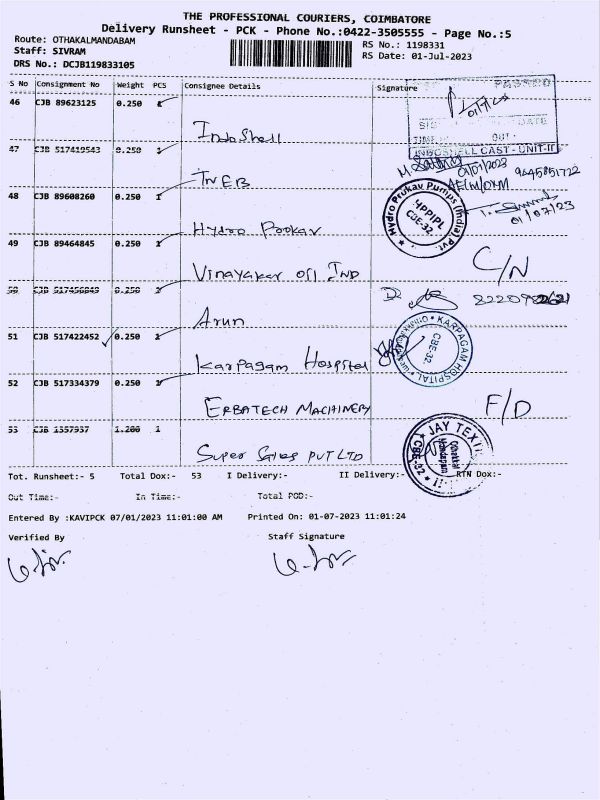 THE PROFESSIONAL COURIERS, COIMBATORE
Delivery Runsheet - PCK - Phone No.:0422-3505555 - Page No.:5
Route: OTHAKALMANDABAM
RS No.: 1198331
Staff: SIVRAM
RS Date: 01-Jul-2023
DRS No.: DCJB119833105
S No Consignment No Weight PCS Consignee Details Signature
46 CJB 89623125 0.250
IndoShell
INDOSHELL CAST - UNIT-II
47 CJB 517419543 0.250 1
01/07/2023
TNEB
48 CJB 89608260 0.250 1
Hydro Prukav Pumps (India) Pvt.
HPPIPL
CBE-32.
01/07/23
Hydro Prokav
49 CJB 89464845 0.250 1
C/N
Vinayakar Oil IND
50 0.250 1
Arun
51 CJB 517422452 0.250 1
KARPAGAM HOSPITAL
CBE-32.
Karpagam Hospital
52 CJB 517334379 0.250
F/D
ERBATECH MACHINERY
53 CJB 1357937 1.200 1
JAY TEXI
CBE-32
Super Sales PVT LTD
Tot. Runsheet:- 5 Total Dox:- 53 I Delivery:- II Delivery:- RTN Dox:-
Out Time:- In Time:- Total POD:-
Entered By :KAVIPCK 07/01/2023 11:01:00 AM Printed On: 01-07-2023 11:01:24
Verified By Staff Signature